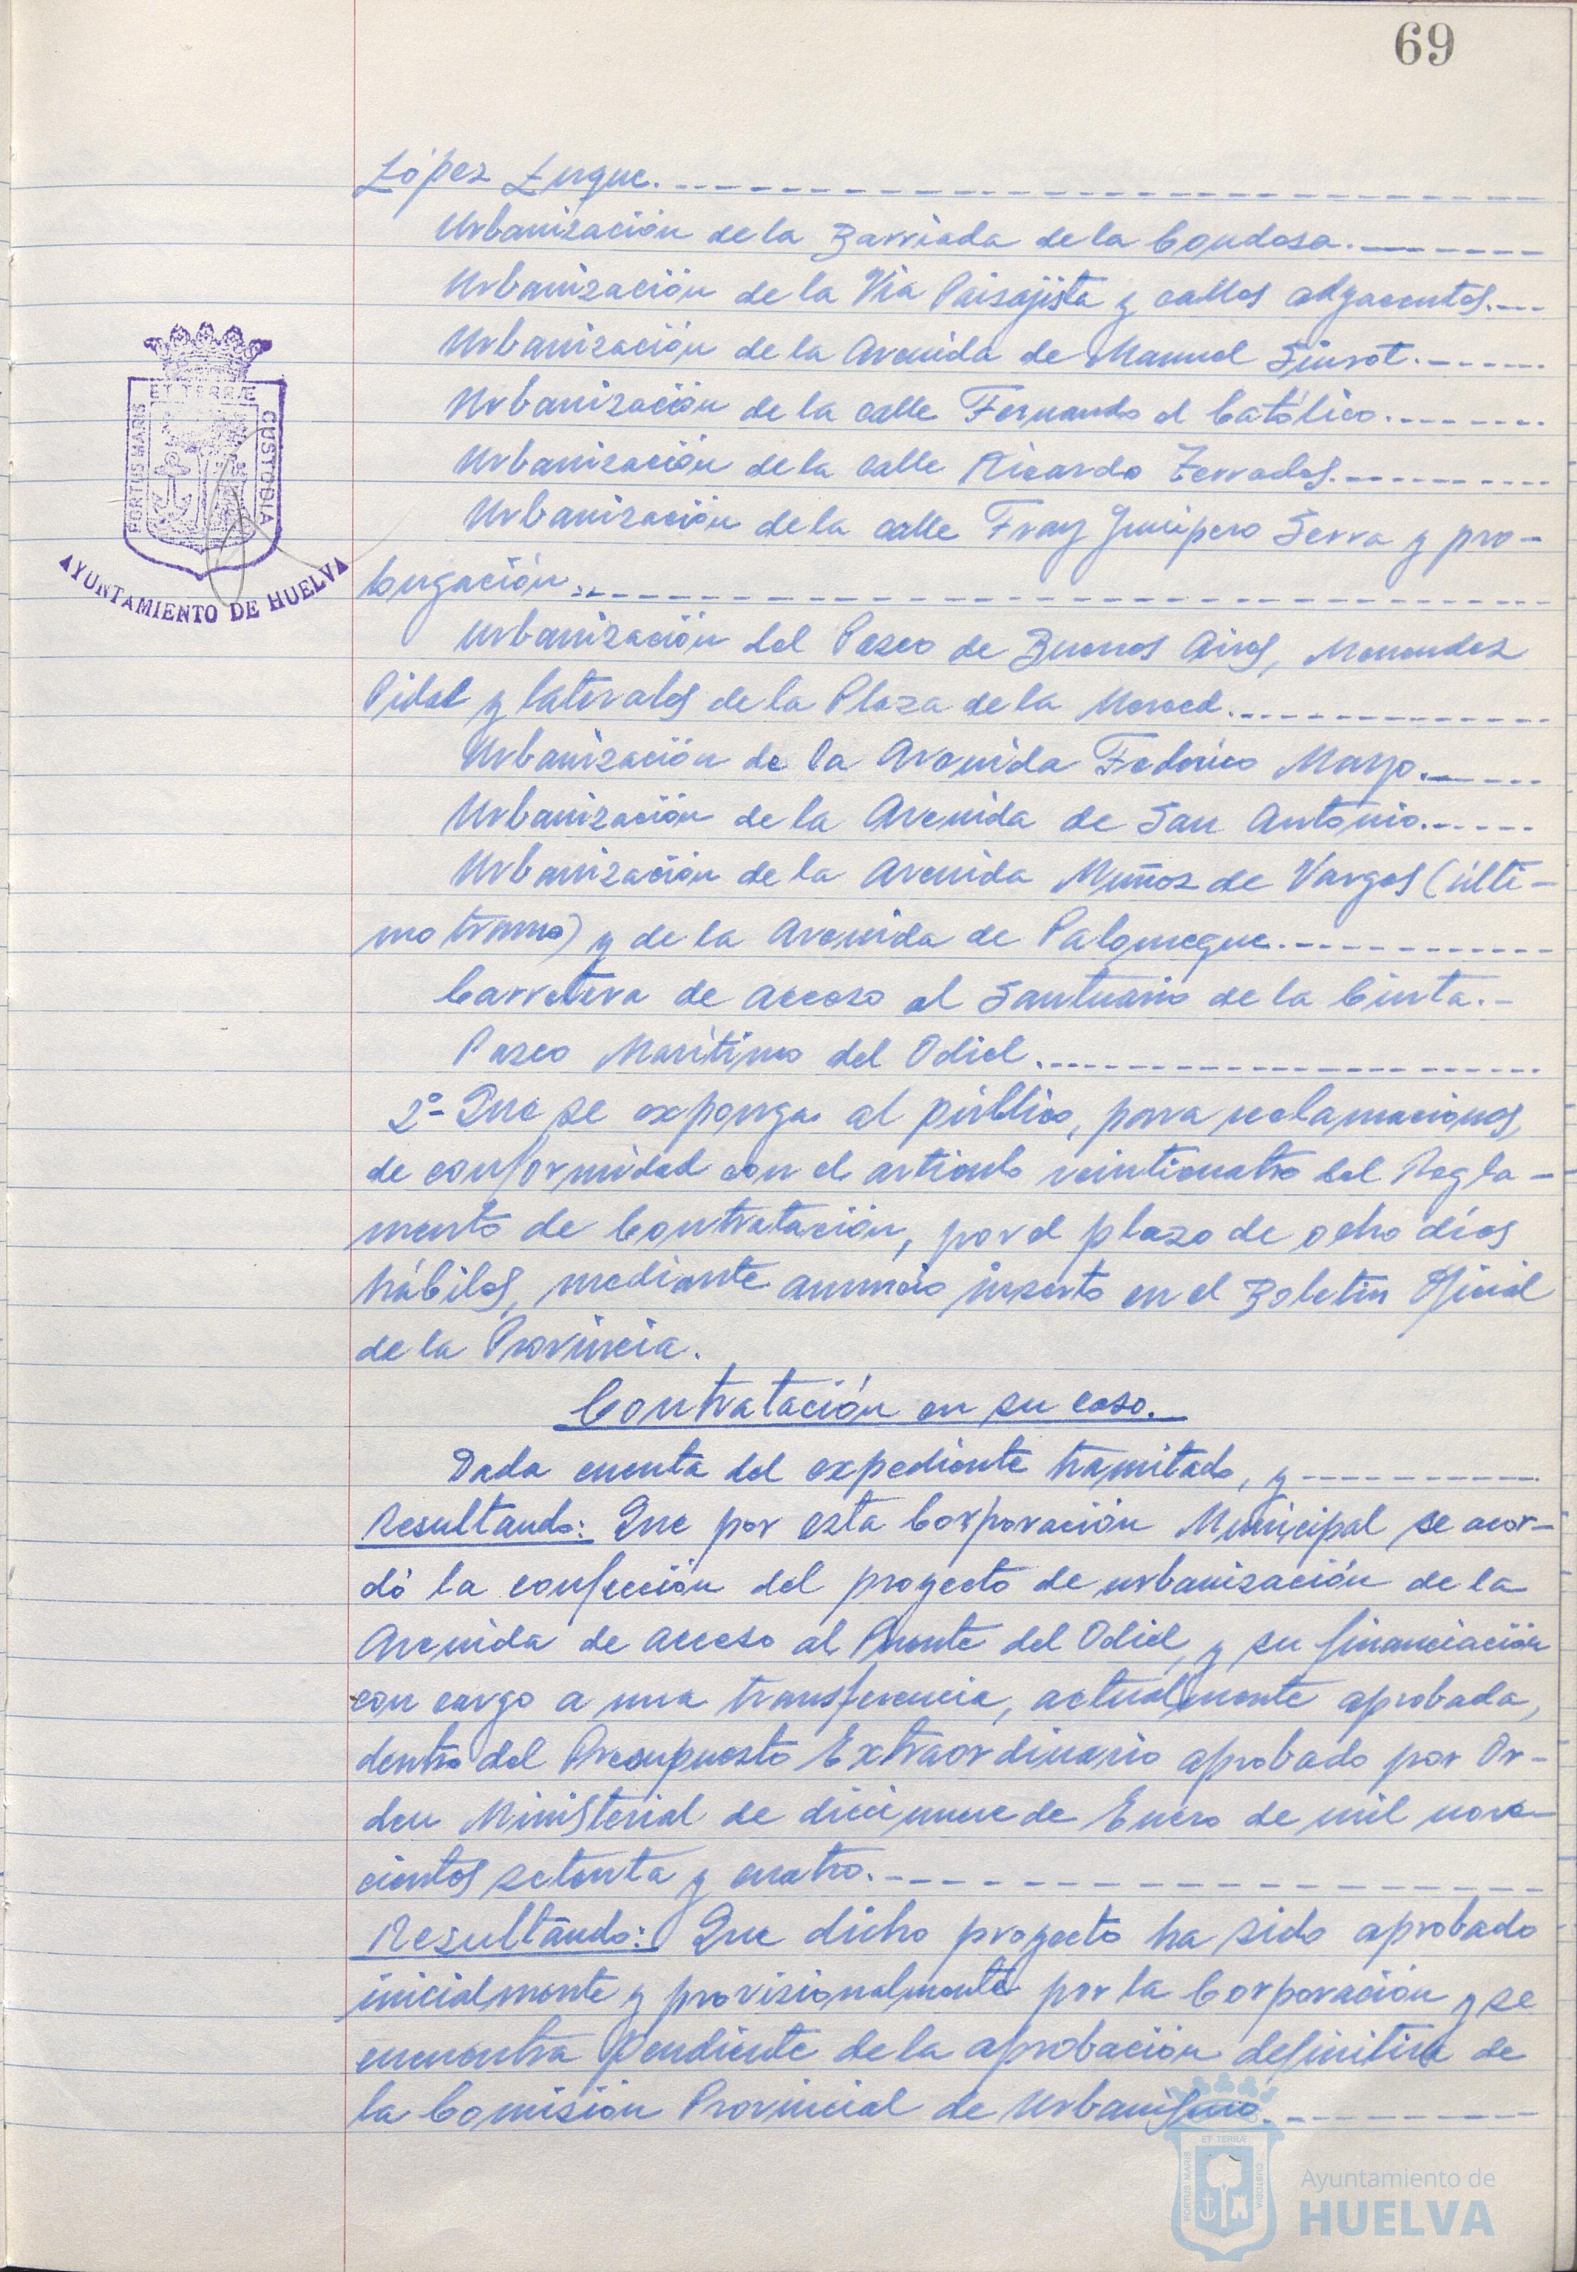 69
López Luque.
Urbanización de la Barriada de la Condesa.
Urbanización de la Vía Paisajista y calles adyacentes.
Urbanización de la Avenida de Manuel Siurot.
Urbanización de la calle Fernando el Católico.
Urbanización de la calle Ricardo Terrades.
Urbanización de la calle Fray Junípero Serra y pro-
longación.
Urbanización del Paseo de Buenos Aires, Menendez
Pidal y laterales de la Plaza de la Merced.
Urbanización de la Avenida Federico Mayo.
Urbanización de la Avenida de San Antonio.
Urbanización de la Avenida Muñoz de Vargas (últi-
mo tramo) y de la Avenida de Palomeque.
Carretera de acceso al Santuario de la Cinta.
Paseo Marítimo del Odiel.
2º- Que se exponga al público, para reclamaciones,
de conformidad con el artículo veinticuatro del Regla-
mento de Contratación, por el plazo de ocho días
hábiles, mediante anuncio inserto en el Boletín Oficial
de la Provincia.
Contratación en su caso.
Dada cuenta del expediente tramitado, y
Resultando: Que por esta Corporación Municipal se acor-
dó la confección del proyecto de urbanización de la
Avenida de acceso al Puente del Odiel, y su financiación
con cargo a una transferencia, actualmente aprobada,
dentro del Presupuesto Extraordinario aprobado por Or-
den Ministerial de diecinueve de Enero de mil nove-
cientos setenta y cuatro.
Resultando: Que dicho proyecto ha sido aprobado
inicialmente y provisionalmente por la Corporación y se
encuentra pendiente de la aprobación definitiva de
la Comisión Provincial de Urbanismo.
PORTUS MARIS
ET TERRÆ
CUSTODIA
AYUNTAMIENTO DE HUELVA
PORTUS MARIS
ET TERRÆ
CUSTODIA
Ayuntamiento de
HUELVA